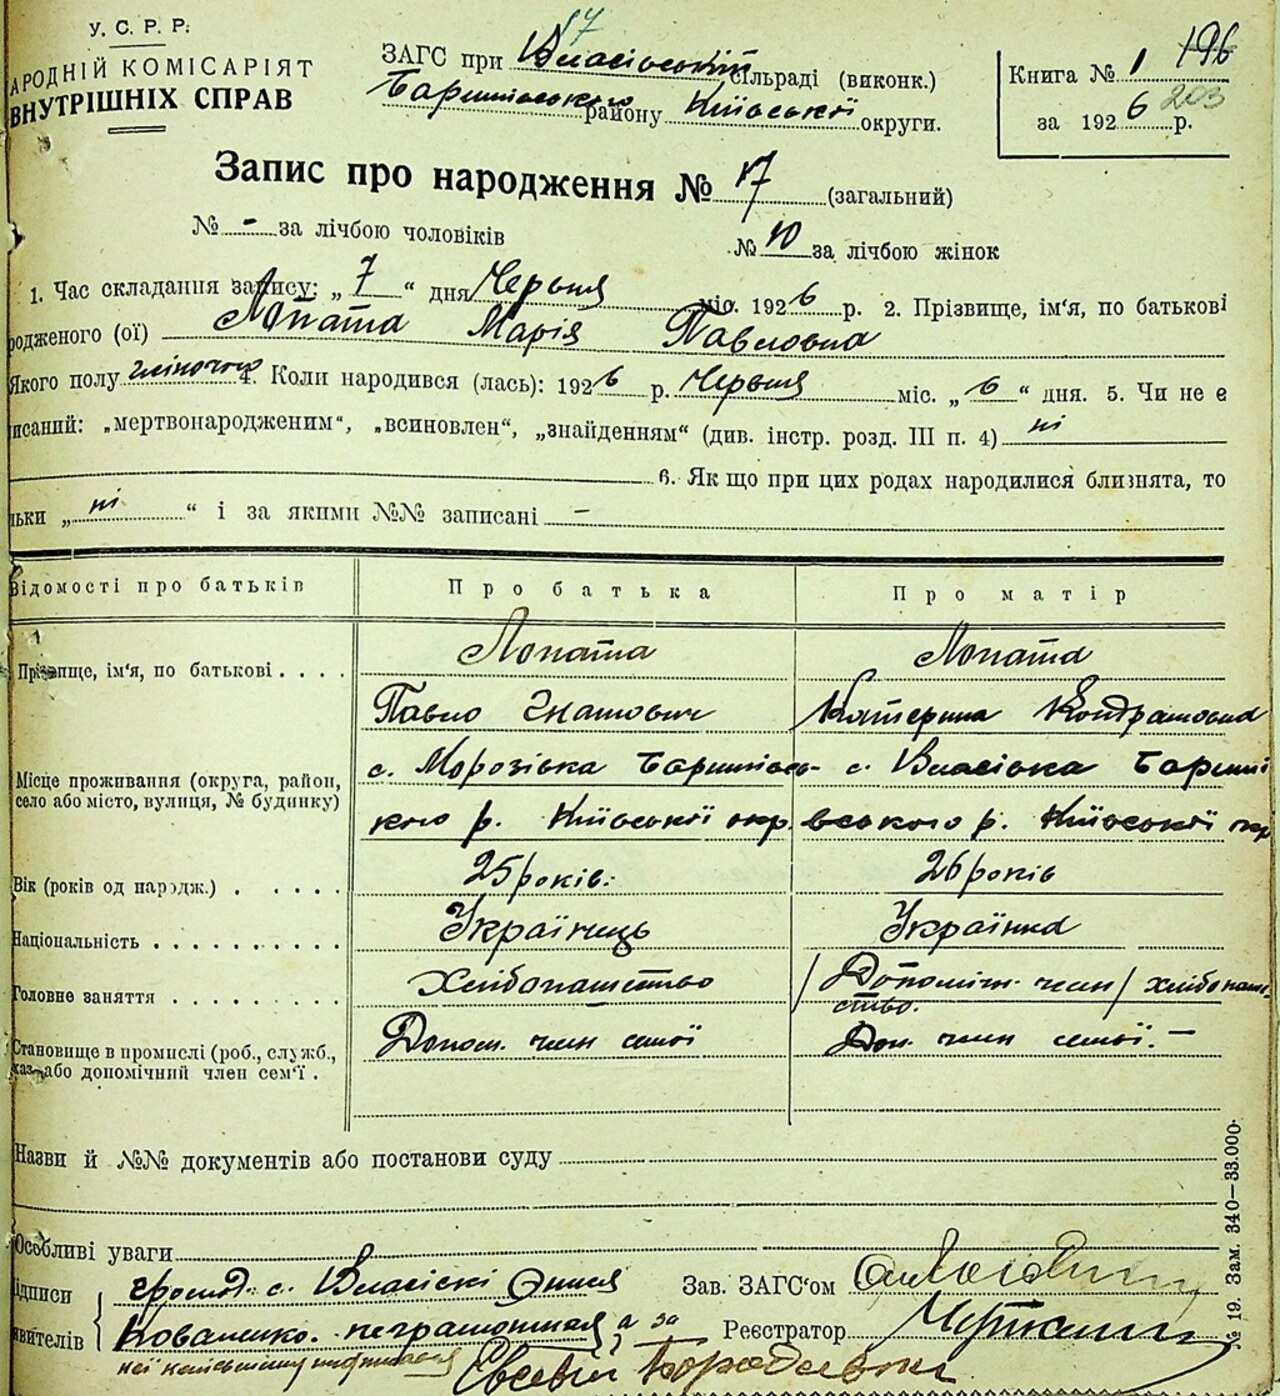 У. С. Р. Р.
17
АРОДНІЙ КОМІСАРІЯТ
ВНУТРІШНІХ СПРАВ
ЗАГС при Власівській сільраді (виконк.)
Баришівського району Київської округи.
Книга № 1 196
203
за 1926 р.
Запис про народження № 17 (загальний)
№ - за лічбою чоловіків № 10 за лічбою жінок
1. Час складання запису: „ 7 “ дня Червня міс. 1926 р. 2. Прізвище, ім'я, по батькові
родженого (ої) Лопата Марія Павловна
Якого полу жіночого 4. Коли народився (лась): 1926 р. Червня міс. „ 6 “ дня. 5. Чи не є
писаний: „мертвонародженим“, „всиновлен“, „знайденням“ (див. інстр. розд. III п. 4) ні
6. Як що при цих родах народилися близнята, то
льки „ ні “ і за якими №№ записані -
Відомості про батьків Про батька Про матір
Прізвище, ім'я, по батькові . . . . Лопата Лопата
Павло Гнатович Катерина Кондратовна
Місце проживання (округа, район, с. Морозівка Баришівсь- с. Власівка Бариші
село або місто, вулиця, № будинку) кого р. Київської окр. вського р. Київської окр
Вік (років од народж.) . . . . . 25 років: 26 років
Національність . . . . . . . . . . Українець Українка
Головне заняття . . . . . . . . . Хлібопашество / Допоміж. член / хлібопаше-
ство.
Становище в промислі (роб., служб., Допом. член семї Доп. член семьї. -
хаз. або допомічний член сем'ї .
Назви й №№ документів або постанови суду
Особливі уваги
ідписи громад. с. Власівкі Зав. ЗАГС'ом
явителів Коваленко. неграмотная, а за Реєстратор
неї
№ 19. Зам. 340—33.000.